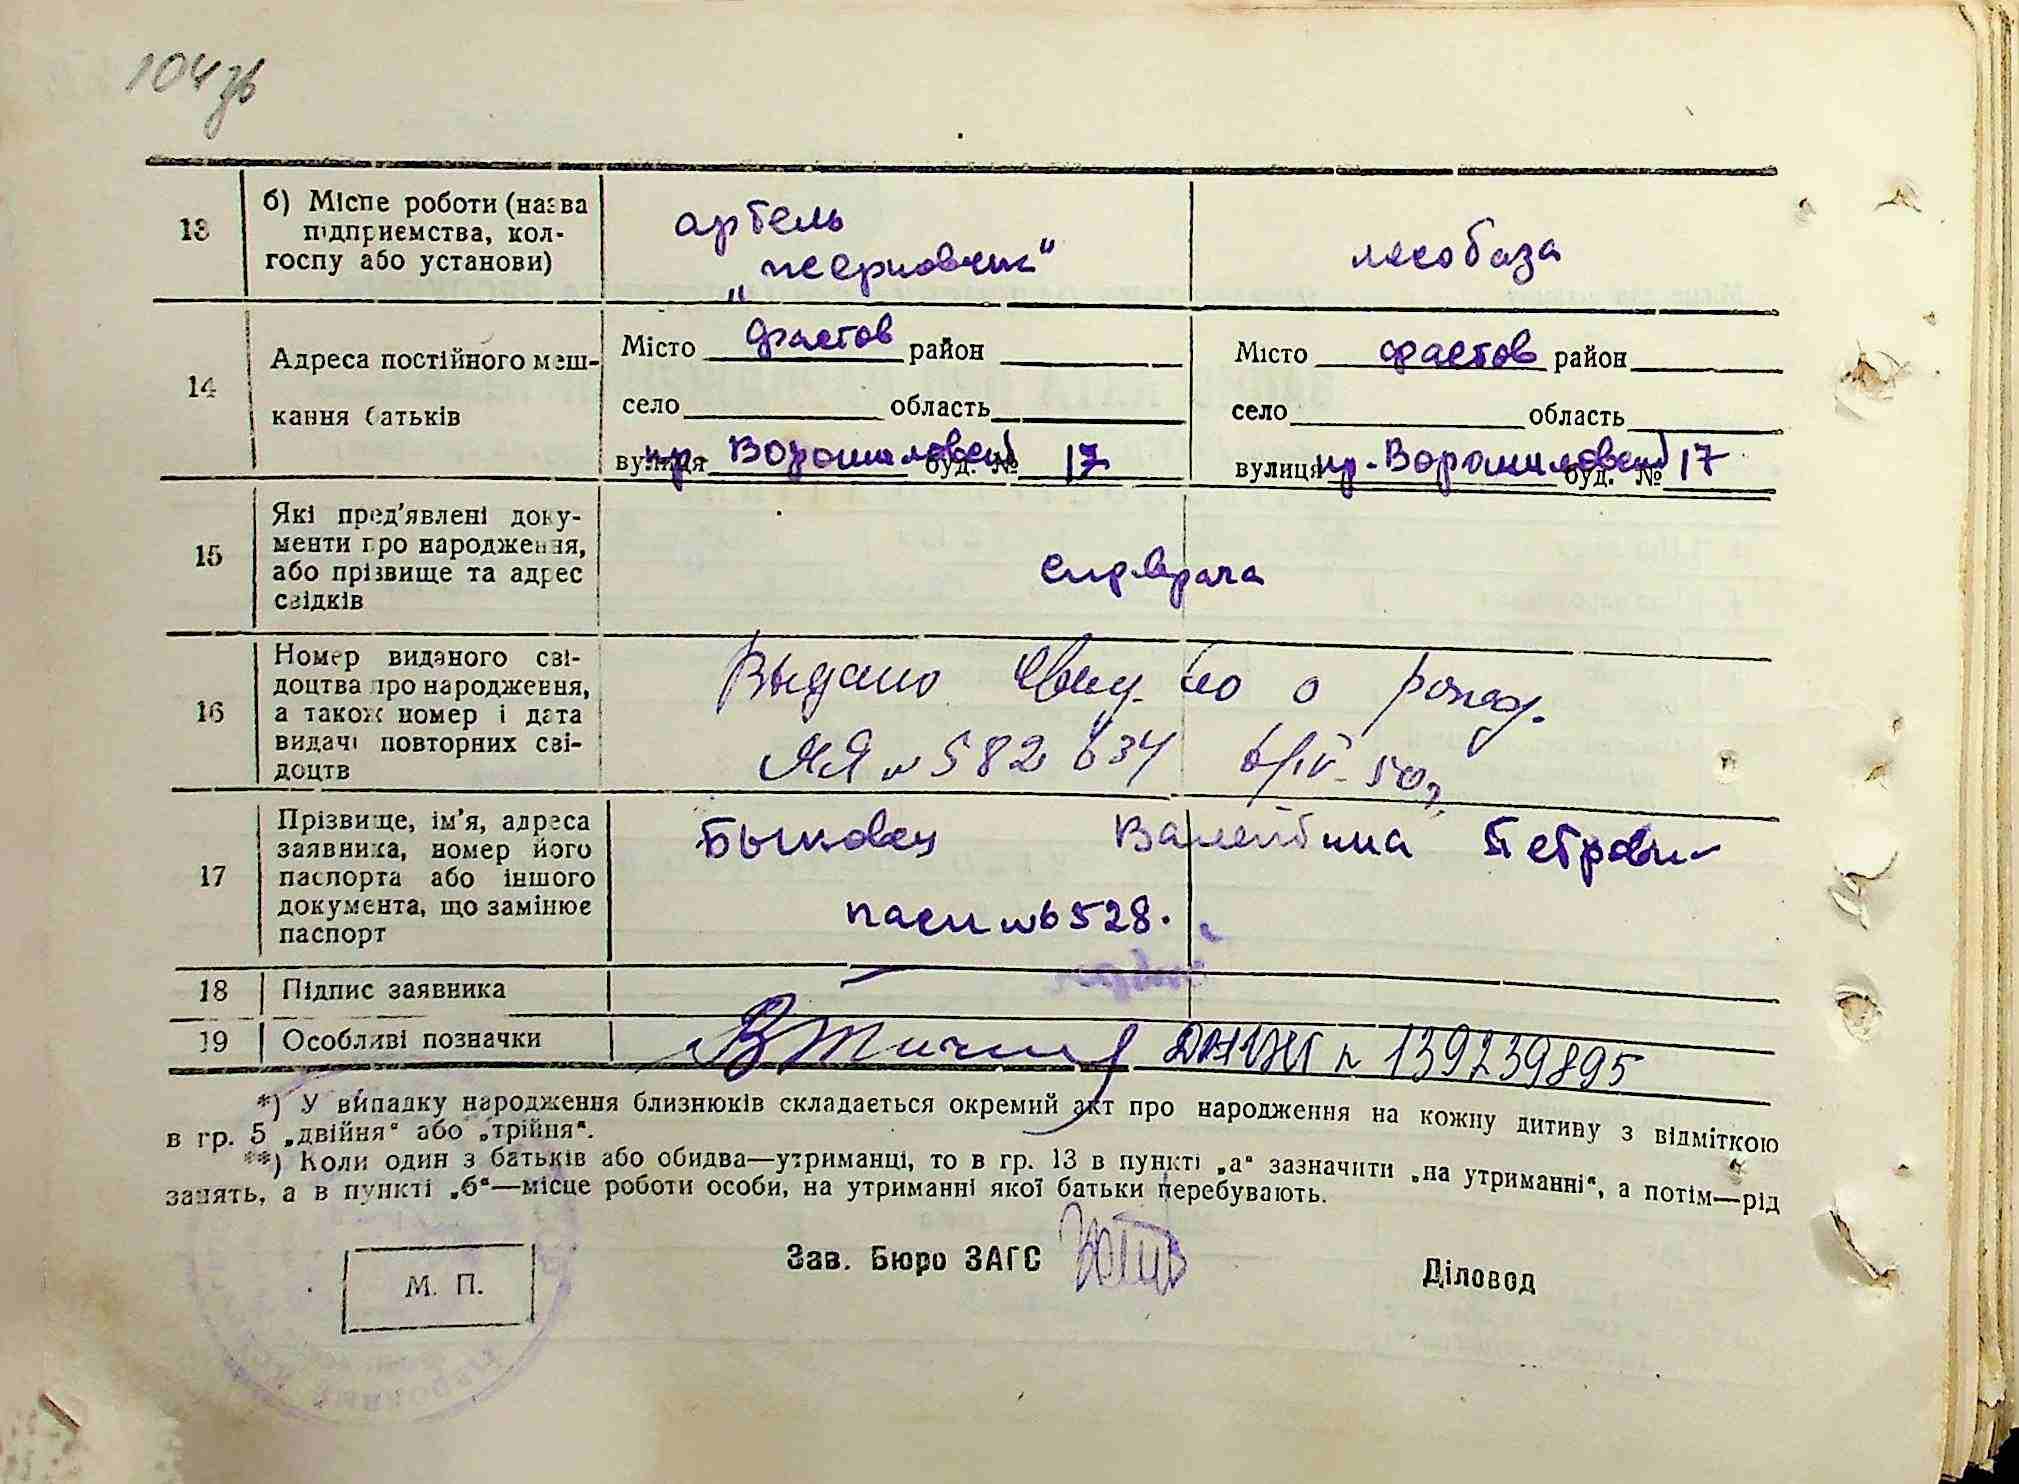 104зв
13
б) Місце роботи (назва
підприємства, кол-
госпу або установи)
артель
"
лесобаза
14
Адреса постійного меш-
кання батьків
Місто Фастов район
село область
вулиця пр. Ворошиловский буд. № 17
Місто Фастов район
село область
вулиця пр. Ворошиловский буд. № 17
15
Які пред'явлені доку-
менти про народження,
або прізвище та адрес
свідків
спр. врача
16
Номер виданого сві-
доцтва про народження,
а також номер і дата
видачі повторних сві-
доцтв
Выдано свид-во о рожд.
ЯЯ № 582634 6/IV-50г.
17
Прізвище, ім'я, адреса
заявника, номер його
паспорта або іншого
документа, що замінює
паспорт
Быковец Валентина Петровн
пасп №6528.
18
Підпис заявника
19
Особливі позначки
139739895
*) У випадку народження близнюків складається окремий акт про народження на кожну дитину з відміткою
в гр. 5 „двійня“ або „трійня“.
**) Коли один з батьків або обидва—утриманці, то в гр. 13 в пункті „а“ зазначити „на утриманні“, а потім—рід
занять, а в пункті „б“—місце роботи особи, на утриманні якої батьки перебувають.
Зав. Бюро ЗАГС
Діловод
М. П.